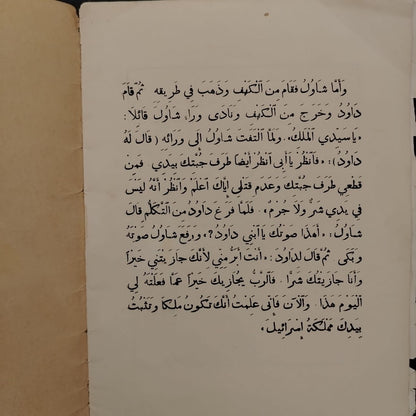 وَأَمَّا شَاوُلُ فَقَامَ مِنَ ٱلْكَهْفِ وَذَهَبَ فِي طَرِيقِهِ ثُمَّ قَامَ
دَاوُدُ وَخَرَجَ مِنَ ٱلْكَهْفِ وَنَادَى وَرَاءَ شَاوُلَ قَائِلًا:
«يَا سَيِّدِي ٱلْمَلِكُ». وَلَمَّا ٱلْتَفَتَ شَاوُلُ إِلَى وَرَائِهِ (قَالَ لَهُ
دَاوُدُ): «فَٱنْظُرْ يَا أَبِي ٱنْظُرْ أَيْضًا طَرَفَ جُبَّتِكَ بِيَدِي فَمِنْ
قَطْعِي طَرَفَ جُبَّتِكَ وَعَدَمِ قَتْلِي إِيَّاكَ ٱعْلَمْ وَٱنْظُرْ أَنَّهُ لَيْسَ
فِي يَدِي شَرٌّ وَلَا جُرْمٌ». فَلَمَّا فَرَغَ دَاوُدُ مِنَ ٱلتَّكَلُّمِ قَالَ
شَاوُلُ: «أَهٰذَا صَوْتُكَ يَا ٱبْنِي دَاوُدُ؟». وَرَفَعَ شَاوُلُ صَوْتَهُ
وَبَكَى ثُمَّ قَالَ لِدَاوُدَ: «أَنْتَ أَبَرُّ مِنِّي لِأَنَّكَ جَازَيْتَنِي خَيْرًا
وَأَنَا جَازَيْتُكَ شَرًّا. فَٱلرَّبُّ يُجَازِيكَ خَيْرًا عَمَّا فَعَلْتَهُ لِي
ٱلْيَوْمَ هٰذَا. وَٱلْآنَ فَإِنِّي عَلِمْتُ أَنَّكَ تَكُونُ مَلِكًا وَتَثْبُتُ
بِيَدِكَ مَمْلَكَةُ إِسْرَائِيلَ».